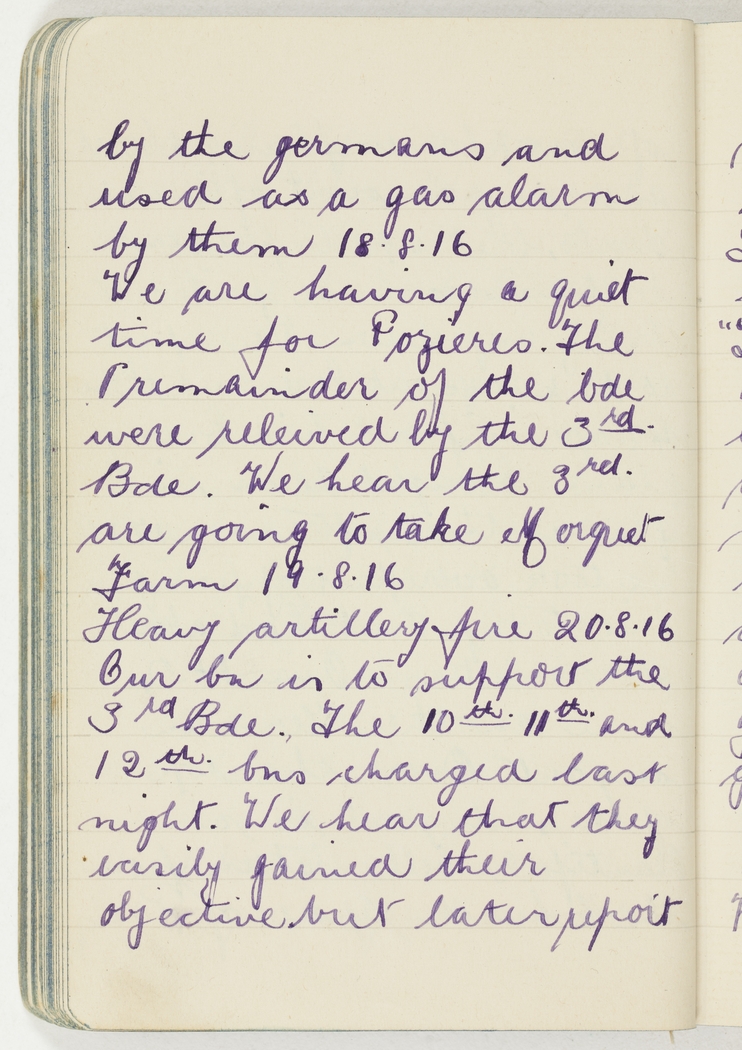 by the germans and
used as a gas alarm
by them 18.8.16
We are having a quiet
time for Pozieres. The
remainder of the bde
were releived by the 3rd.
Bde. We hear the 3rd.
are going to take Morquet
Farm 19.8.16
Heavy artillery fire 20.8.16
Our bn is to support the
3rd Bde. The 10th. 11th. and
12th. bns charged last
night. We hear that they
easily gained their
objective but later report